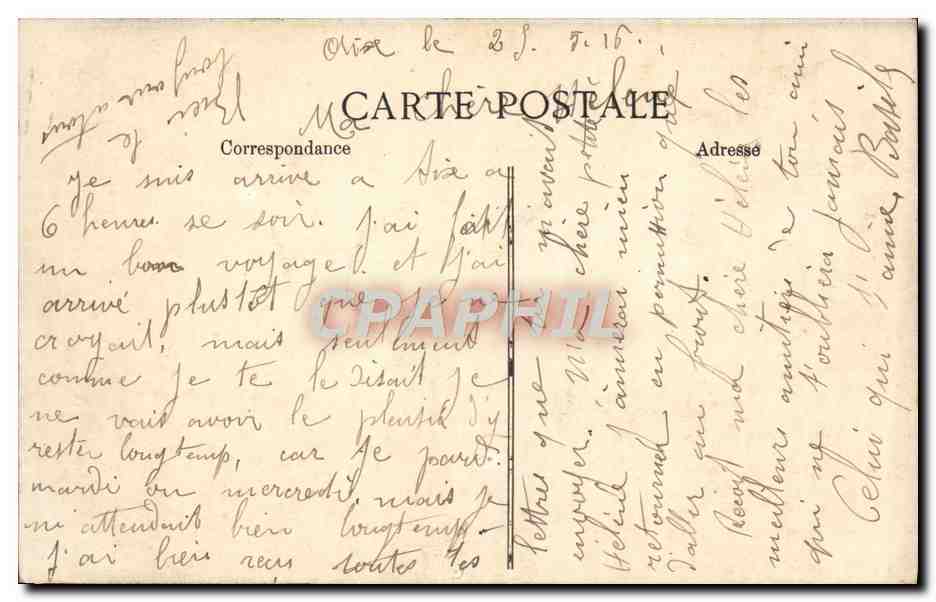 Aixe le 25. 5. 16.
CARTE POSTALE
Ma chère Hélène
Correspondance
Adresse
Je suis arrivé a Aixe a
6 heures se soir. J'ai fait
un bon voyage. et j'ai
arrivé plustôt que je ne
croyait, mais seulement
comme je te le disait je
ne vais avoir le plaisir d'y
rester longtemp, car je part.
mardi ou mercredi, mais je
m'attendait bien longtemp.
J'ai bien reçu toutes tes
lettres que tu m'avait
envoyer. Ma chère petite
Hélène j'aimerai mieu
retourner en permission que
d'aller au front.
Reçoit ma chère Hélène les
meilleurs amitiés de ton ami
qui ne t'oubliera jamais
Celui qui t'aime
Bien le
a tous
CPAPHIL